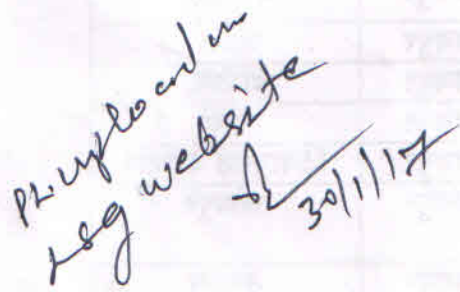 Pl. upload on
rsg website
30/1/17